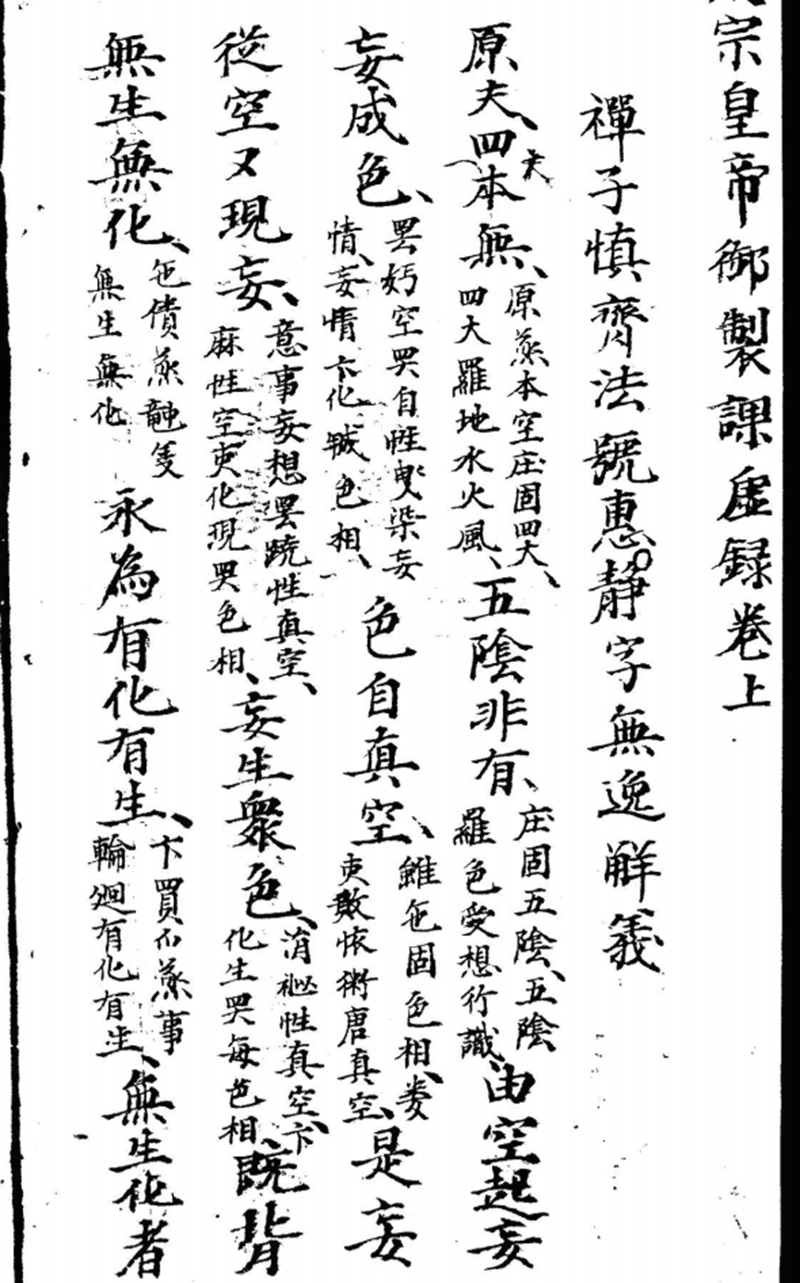 宗皇帝御製課虚録卷上
禪子慎齋法號惠靜字無逸解義
原夫、四大本無、原蒸本空庄固四大、四大羅地水火風、五陰非有、庄固五陰、五陰羅色受想行識、由空起妄
妄成色、空自性染妄情、妄情卞化色相、色自真空、雖㐌固色相、吏散術唐真空、是妄
從空又現妄、意事妄想性真空、麻性空吏化現色相、妄生衆色、性真空、卞化生每色相、既背
無生無化、㐌債蒸隻無生無化永為有化有生、卞買蒸事輪廻有化有生、無生化者